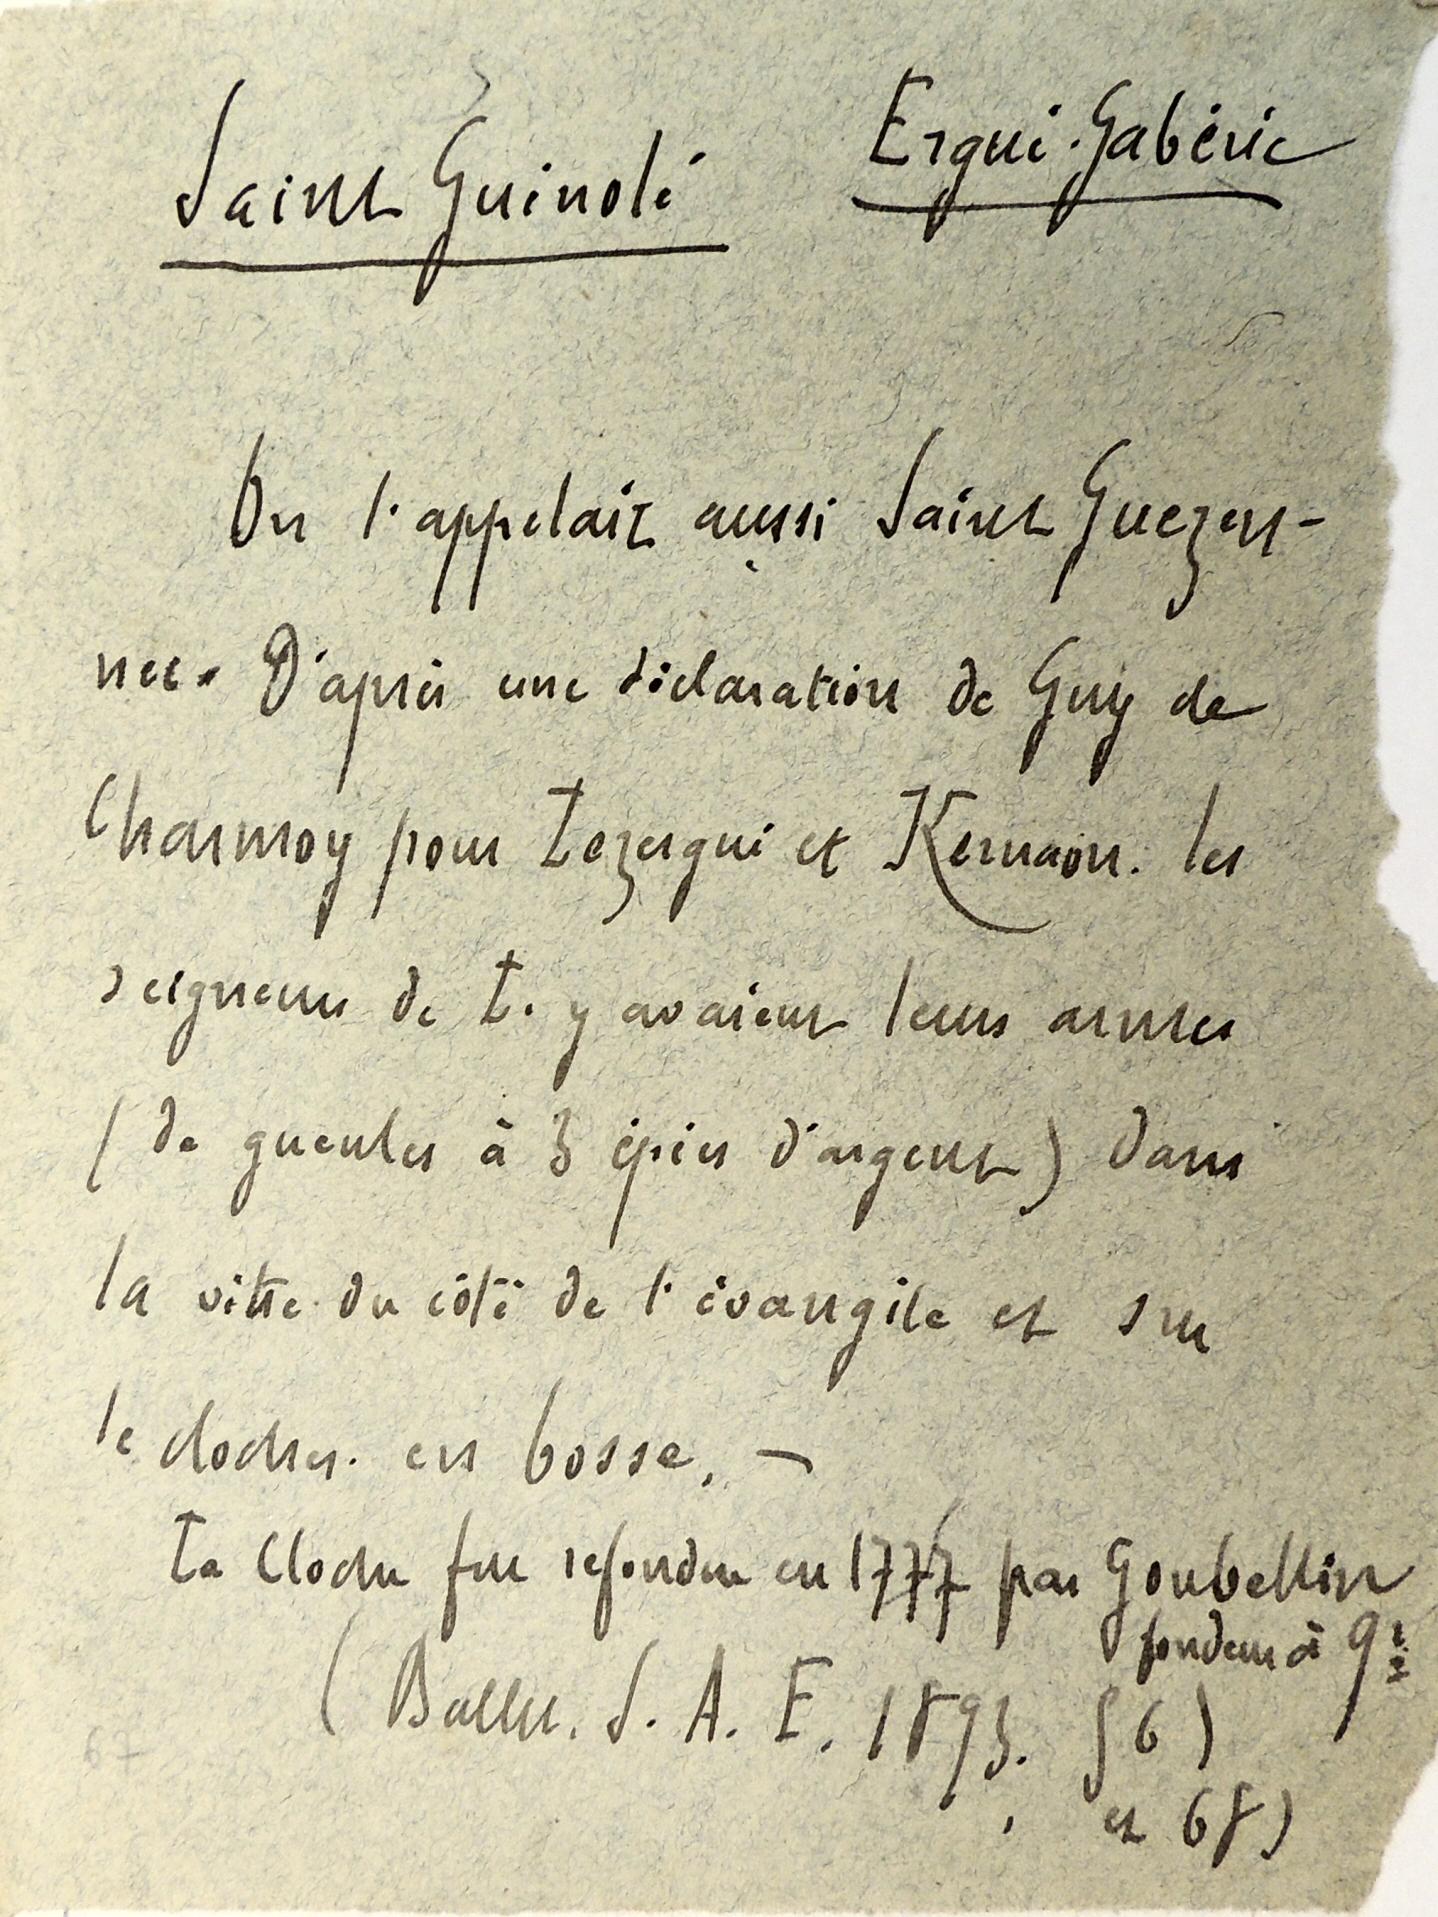 Saint Guinolé
Ergui-Gabéric
On l'appelait aussi Saint Guezen-
nec. D'après une déclaration de Guy de
Charmoy pour Lezergui et Kernaon. les
seigneurs de L. y avaient leurs armes
(de gueules à 3 épies d'argent) dans
la vitre du côté de l'évangile et sur
le clocher. en bosse. -
La Cloche fut refondue en 1777 par Goubellin
fondeur à
(Bullet. S. A. F. 1893. 56)
et 68)
67